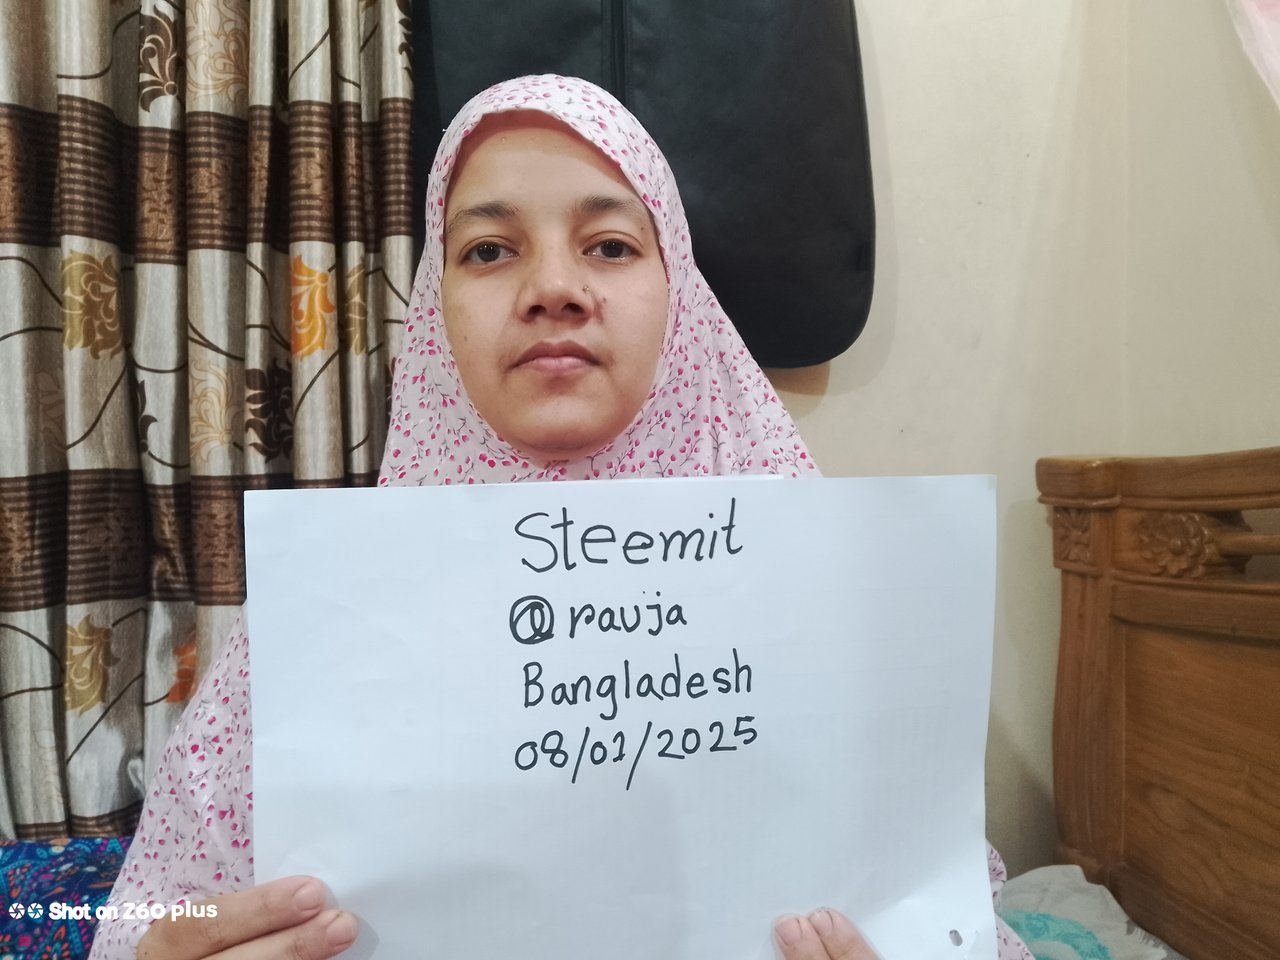 Steemit
@rauja
Bangladesh
08/01/2025
Shot on Z60 plus